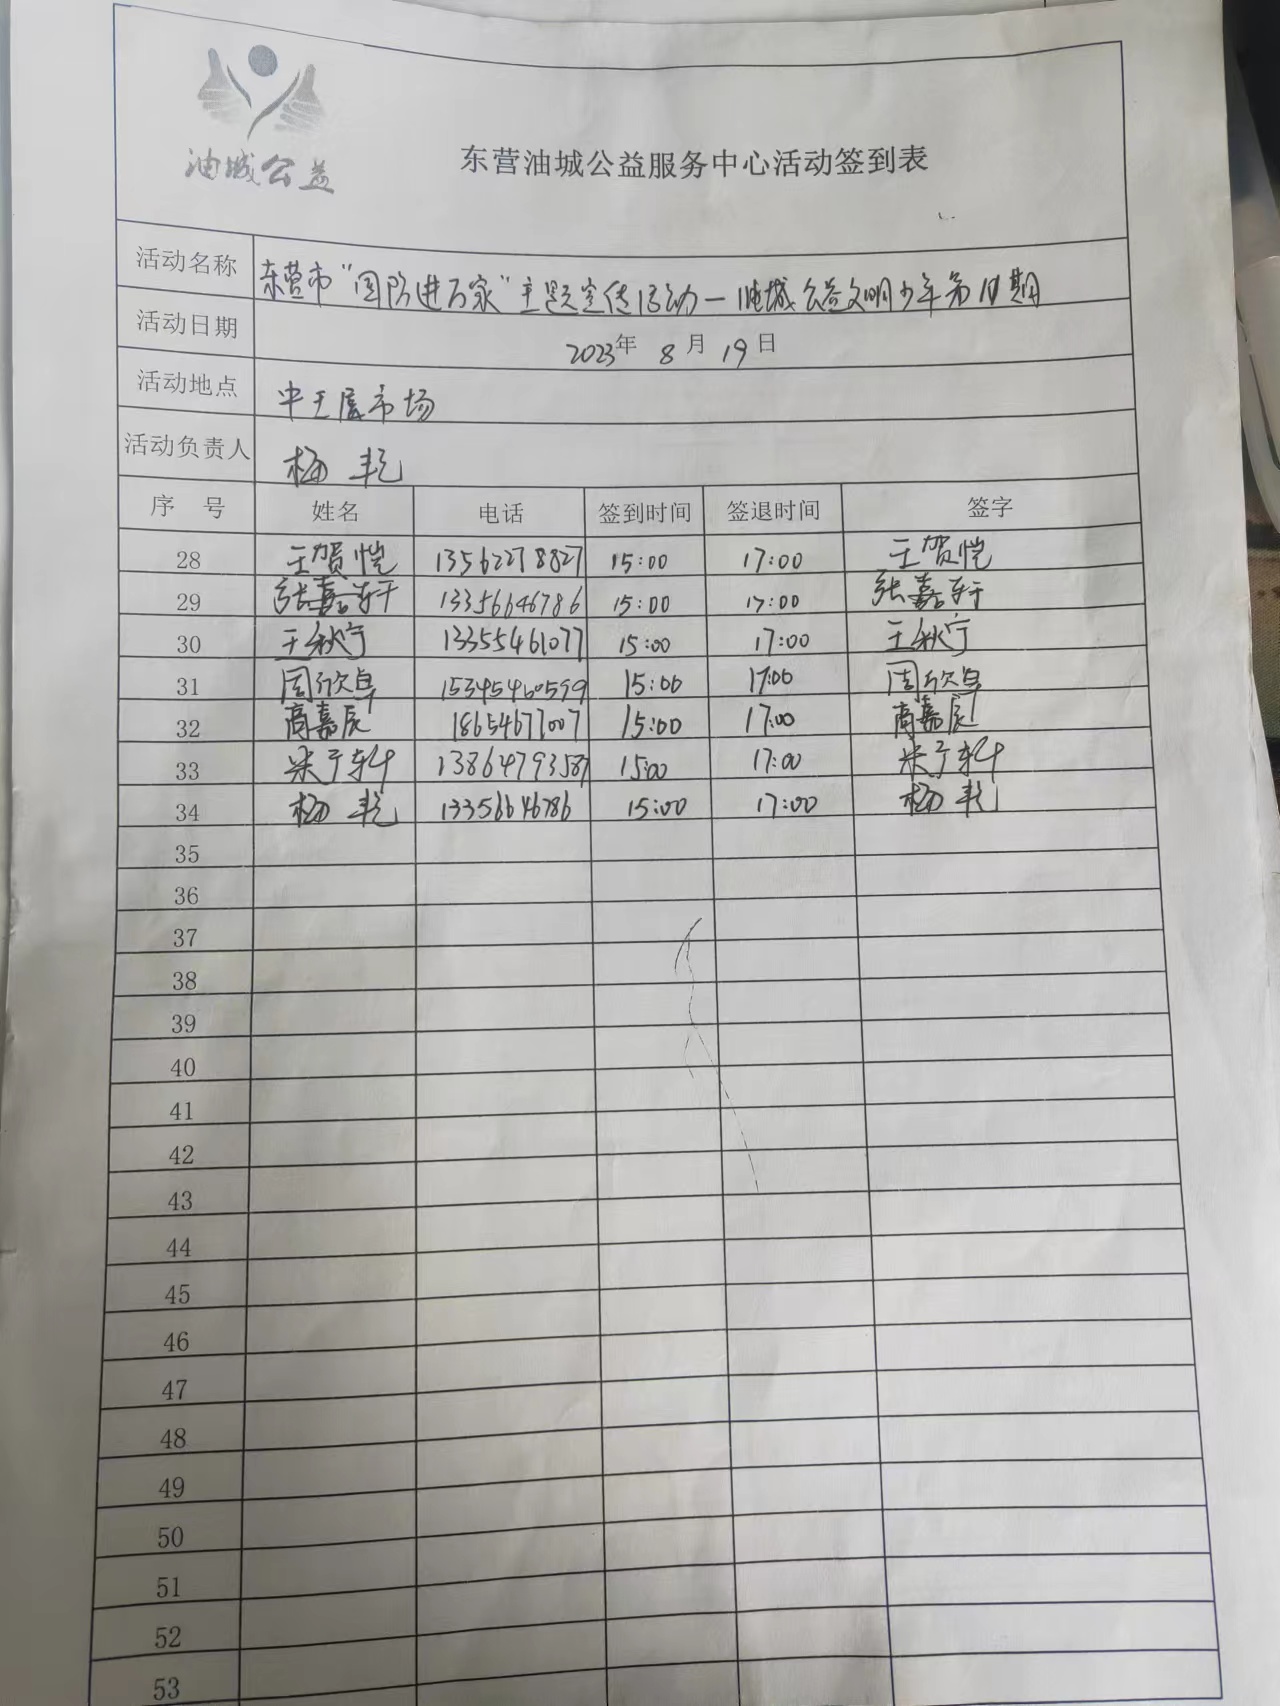 油城公益
东营油城公益服务中心活动签到表
活动名称 东营市“国防进万家”主题宣传活动—油城公益文明少年第 期
活动日期 2023年 8月 19日
活动地点 中王屋市场
活动负责人 杨
序 号 姓名 电话 签到时间 签退时间 签字
28 王贺恺 13562278827 15:00 17:00 王贺恺
29 张嘉轩 13356646786 15:00 17:00 张嘉轩
30 王秋宁 13355461077 15:00 17:00 王秋宁
31 周欣卓 15345460599 15:00 17:00 周欣卓
32 高嘉辰 18654677007 15:00 17:00 高嘉辰
33 宋子轩 13864793587 15:00 17:00 宋子轩
34 杨 13356646786 15:00 17:00 杨
35
36
37
38
39
40
41
42
43
44
45
46
47
48
49
50
51
52
53